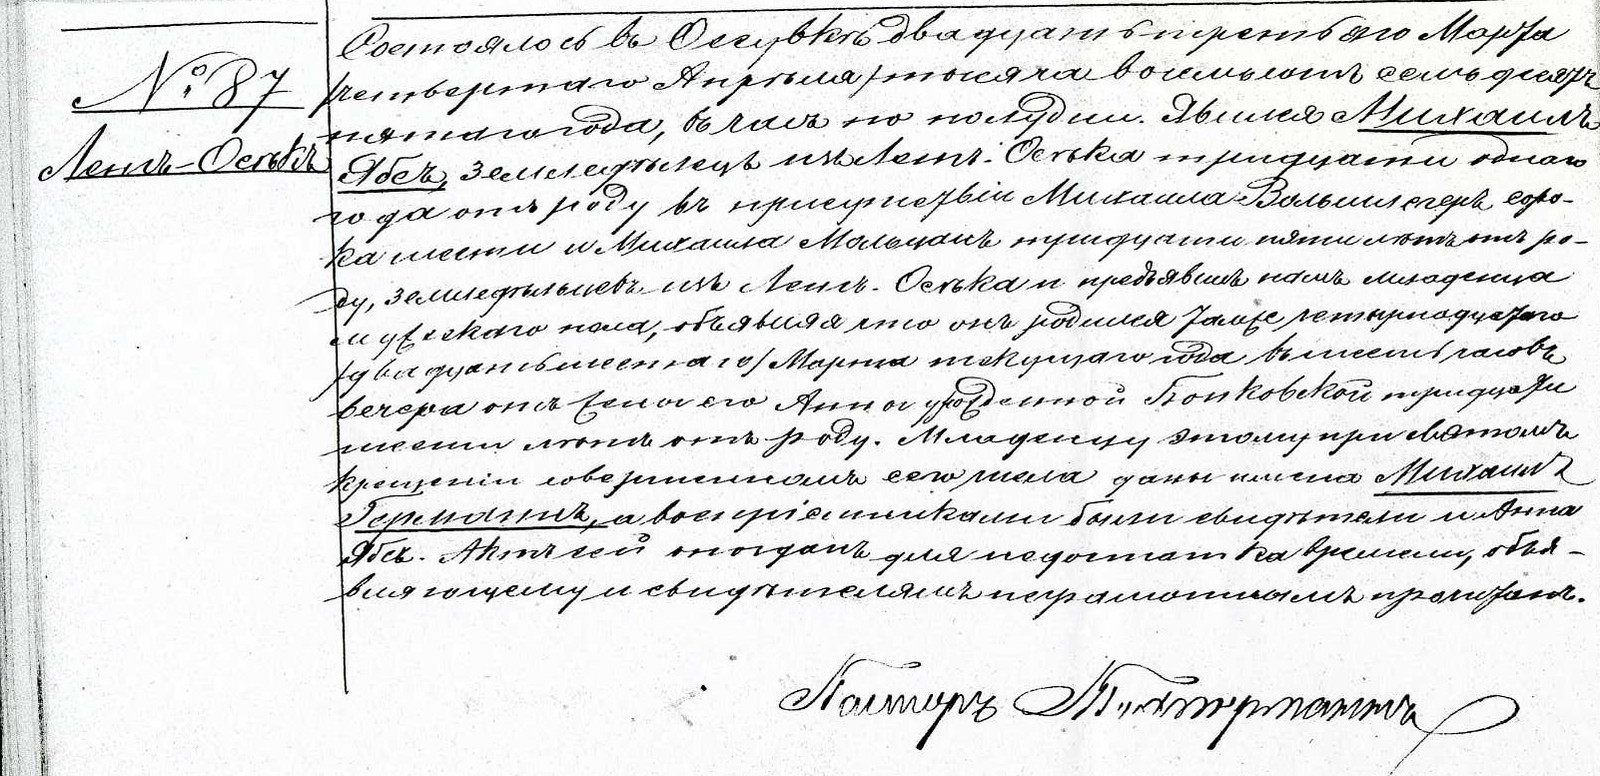 № 87
Ленъ-Оська
Состоялось въ Осувкѣ двадцать третьяго Марта
/четвертаго Апрѣля/ тысяча восемьсотъ семьдесятъ
пятаго года, въ часъ по полудни. Явился Михаилъ
Ябсъ, земледѣлецъ изъ Ленъ-Оська тридцати одного
года отъ роду въ присутствіи Михаила соро-
ка шести и Михаила Мальцанъ тридцати пяти лѣтъ отъ ро-
ду, земледѣльцевъ изъ Ленъ-Оська и предъявилъ намъ младенца
мужескаго пола, объявляя что онъ родился тамже четырнадцатаго
/двадцать шестаго/ Марта текущаго года въ шесть часовъ
вечера отъ жены его Анны урожденной Бонковской тридцати
шести лѣтъ отъ роду. Младенцу этому при святомъ
крещеніи совершенномъ сего числа даны имена Михаилъ
Германъ, а воспріемниками были свидѣтели и Анна
Ябсъ. Актъ сей опозданъ для недостатка времени, объя-
вляющему и свидѣтелямъ неграмотнымъ прочитанъ.
Пасторъ